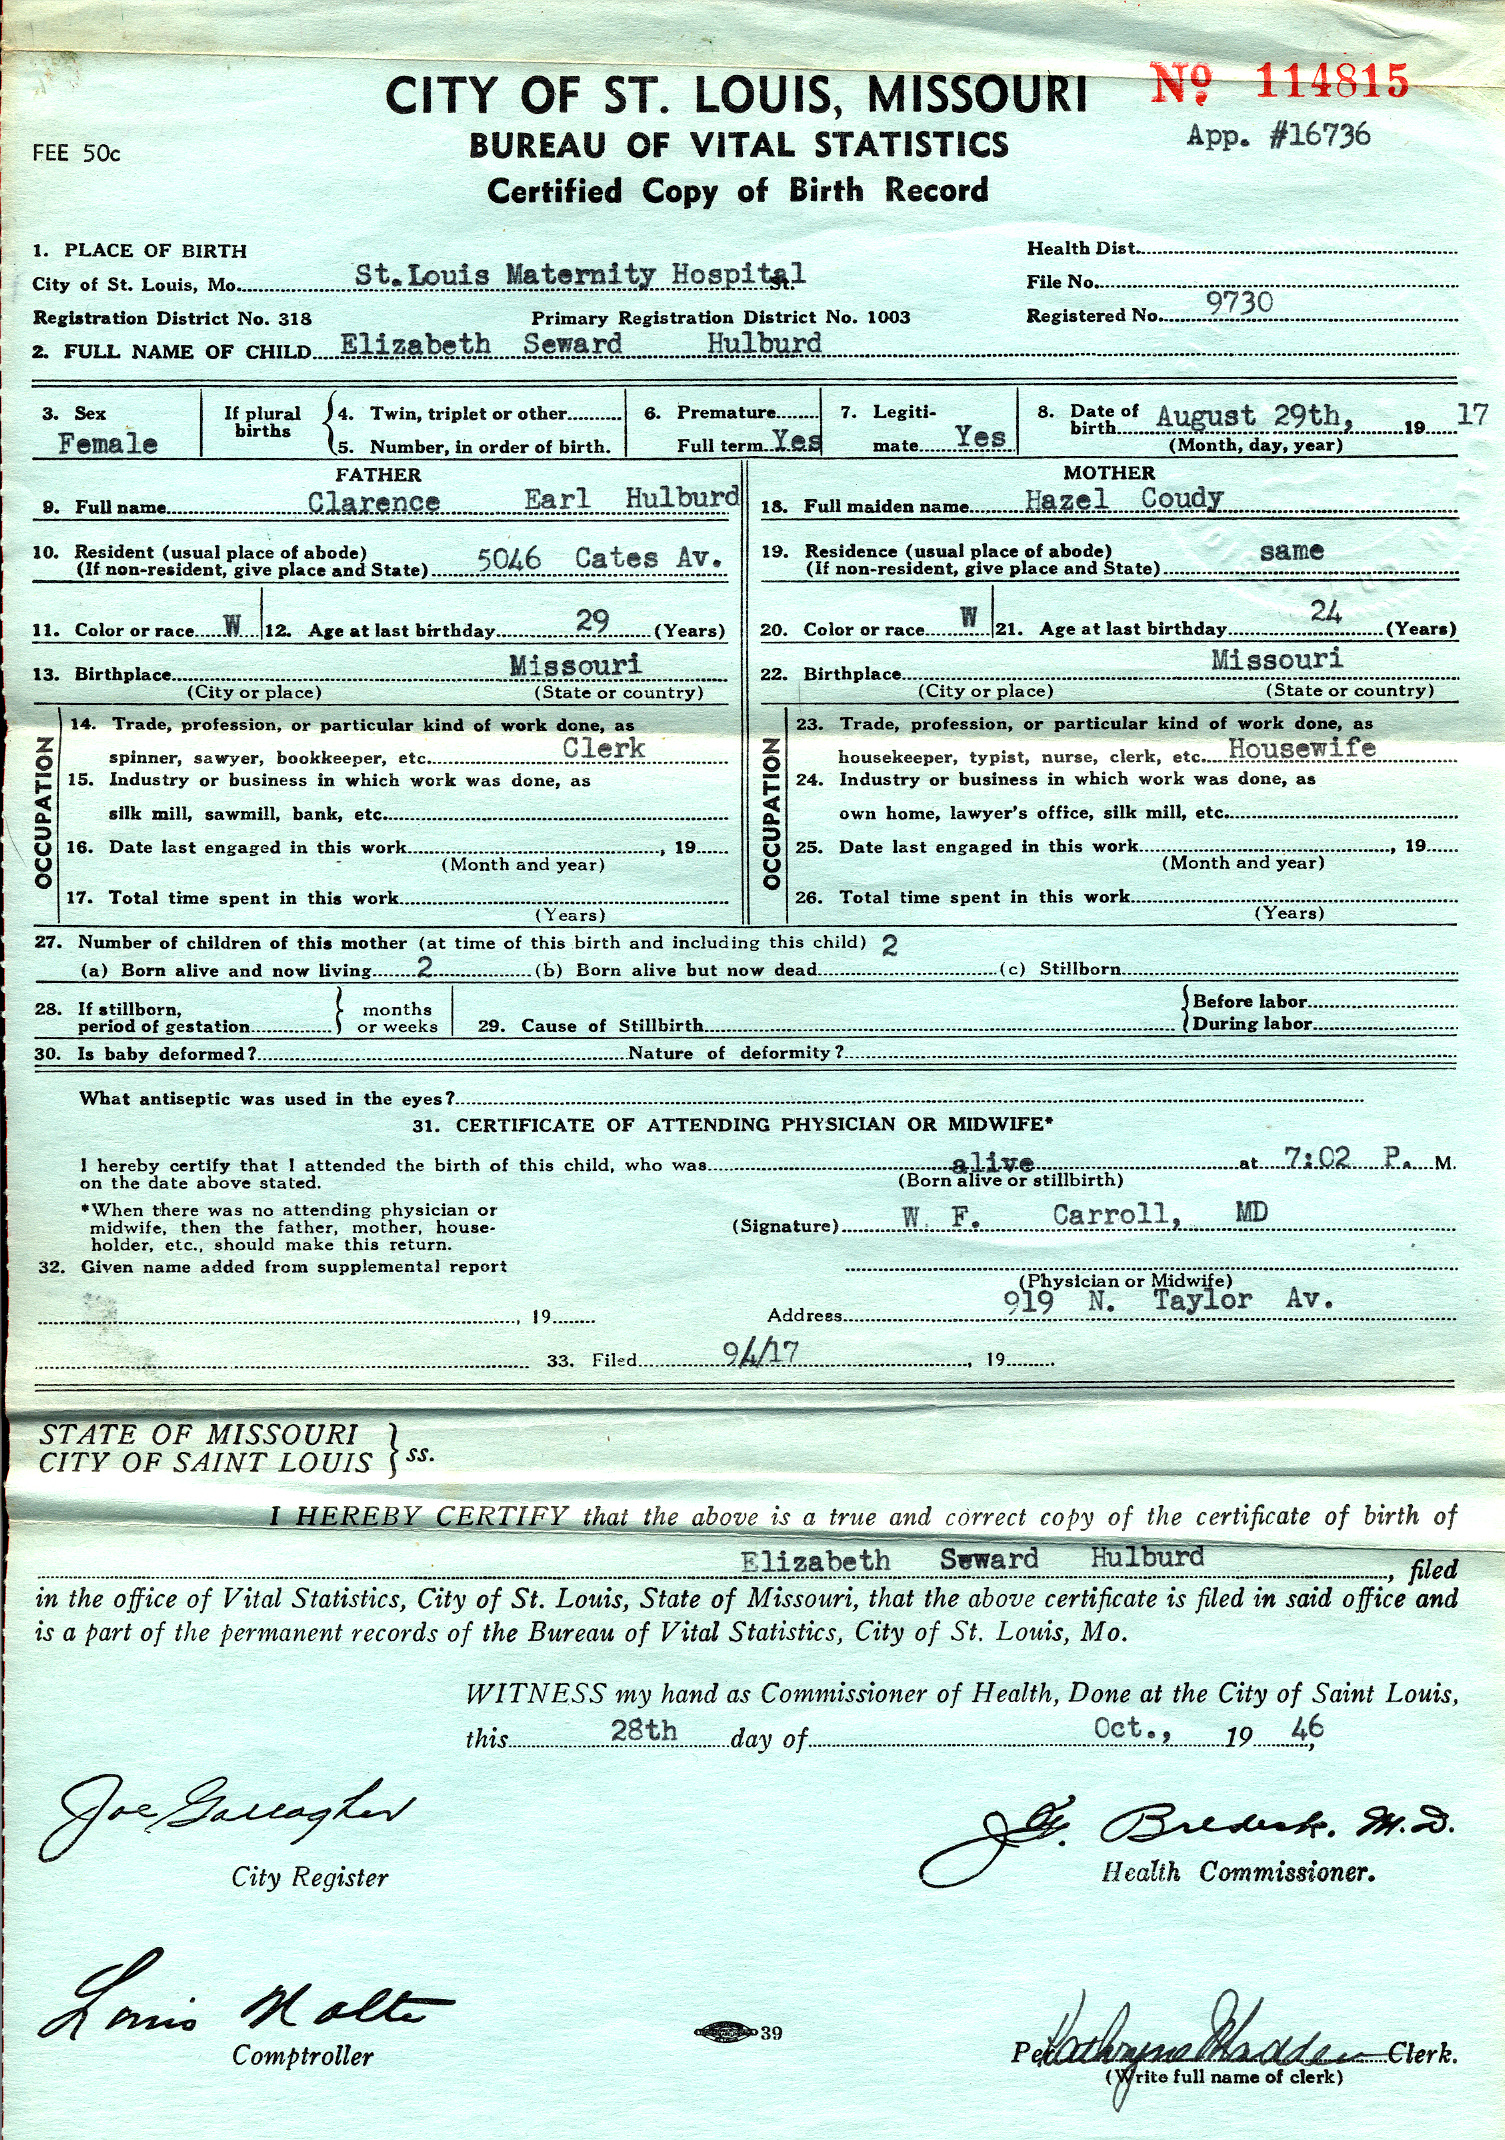 CITY OF ST. LOUIS, MISSOURI
Nº 114815
BUREAU OF VITAL STATISTICS
App. #16736
FEE 50c
Certified Copy of Birth Record
1. PLACE OF BIRTH
Health Dist.
City of St. Louis, Mo. St.Louis Maternity Hospital St.
File No.
Registration District No. 318 Primary Registration District No. 1003
Registered No. 9730
2. FULL NAME OF CHILD Elizabeth Seward Hulburd
3. Sex Female
If plural births
4. Twin, triplet or other
5. Number, in order of birth.
6. Premature
Full term Yes
7. Legiti-
mate Yes
8. Date of birth August 29th, 19 17
(Month, day, year)
FATHER
9. Full name Clarence Earl Hulburd
10. Resident (usual place of abode)
(If non-resident, give place and State) 5046 Cates Av.
11. Color or race W 12. Age at last birthday 29 (Years)
13. Birthplace Missouri
(City or place) (State or country)
OCCUPATION
14. Trade, profession, or particular kind of work done, as
spinner, sawyer, bookkeeper, etc. Clerk
15. Industry or business in which work was done, as
silk mill, sawmill, bank, etc.
16. Date last engaged in this work, 19
(Month and year)
17. Total time spent in this work
(Years)
MOTHER
18. Full maiden name Hazel Coudy
19. Residence (usual place of abode)
(If non-resident, give place and State) same
20. Color or race W 21. Age at last birthday 24 (Years)
22. Birthplace Missouri
(City or place) (State or country)
OCCUPATION
23. Trade, profession, or particular kind of work done, as
housekeeper, typist, nurse, clerk, etc. Housewife
24. Industry or business in which work was done, as
own home, lawyer's office, silk mill, etc.
25. Date last engaged in this work, 19
(Month and year)
26. Total time spent in this work
(Years)
27. Number of children of this mother (at time of this birth and including this child) 2
(a) Born alive and now living 2 (b) Born alive but now dead (c) Stillborn
28. If stillborn,
period of gestation
months
or weeks
29. Cause of Stillbirth
Before labor
During labor
30. Is baby deformed? Nature of deformity?
What antiseptic was used in the eyes?
31. CERTIFICATE OF ATTENDING PHYSICIAN OR MIDWIFE*
I hereby certify that I attended the birth of this child, who was alive at 7:02 P. M.
on the date above stated. (Born alive or stillbirth)
*When there was no attending physician or
midwife, then the father, mother, house-
holder, etc., should make this return.
(Signature) W. F. Carroll, MD
32. Given name added from supplemental report
(Physician or Midwife)
, 19
Address 919 N. Taylor Av.
33. Filed 94/17, 19
STATE OF MISSOURI
CITY OF SAINT LOUIS
ss.
I HEREBY CERTIFY that the above is a true and correct copy of the certificate of birth of
Elizabeth Seward Hulburd, filed
in the office of Vital Statistics, City of St. Louis, State of Missouri, that the above certificate is filed in said office and
is a part of the permanent records of the Bureau of Vital Statistics, City of St. Louis, Mo.
WITNESS my hand as Commissioner of Health, Done at the City of Saint Louis,
this 28th day of Oct., 19 46,
Joe Gallagher
City Register
J. F. Bredeck. M.D.
Health Commissioner.
Louis Nolte
Comptroller
39
Per Kathryne Madden Clerk.
(Write full name of clerk)